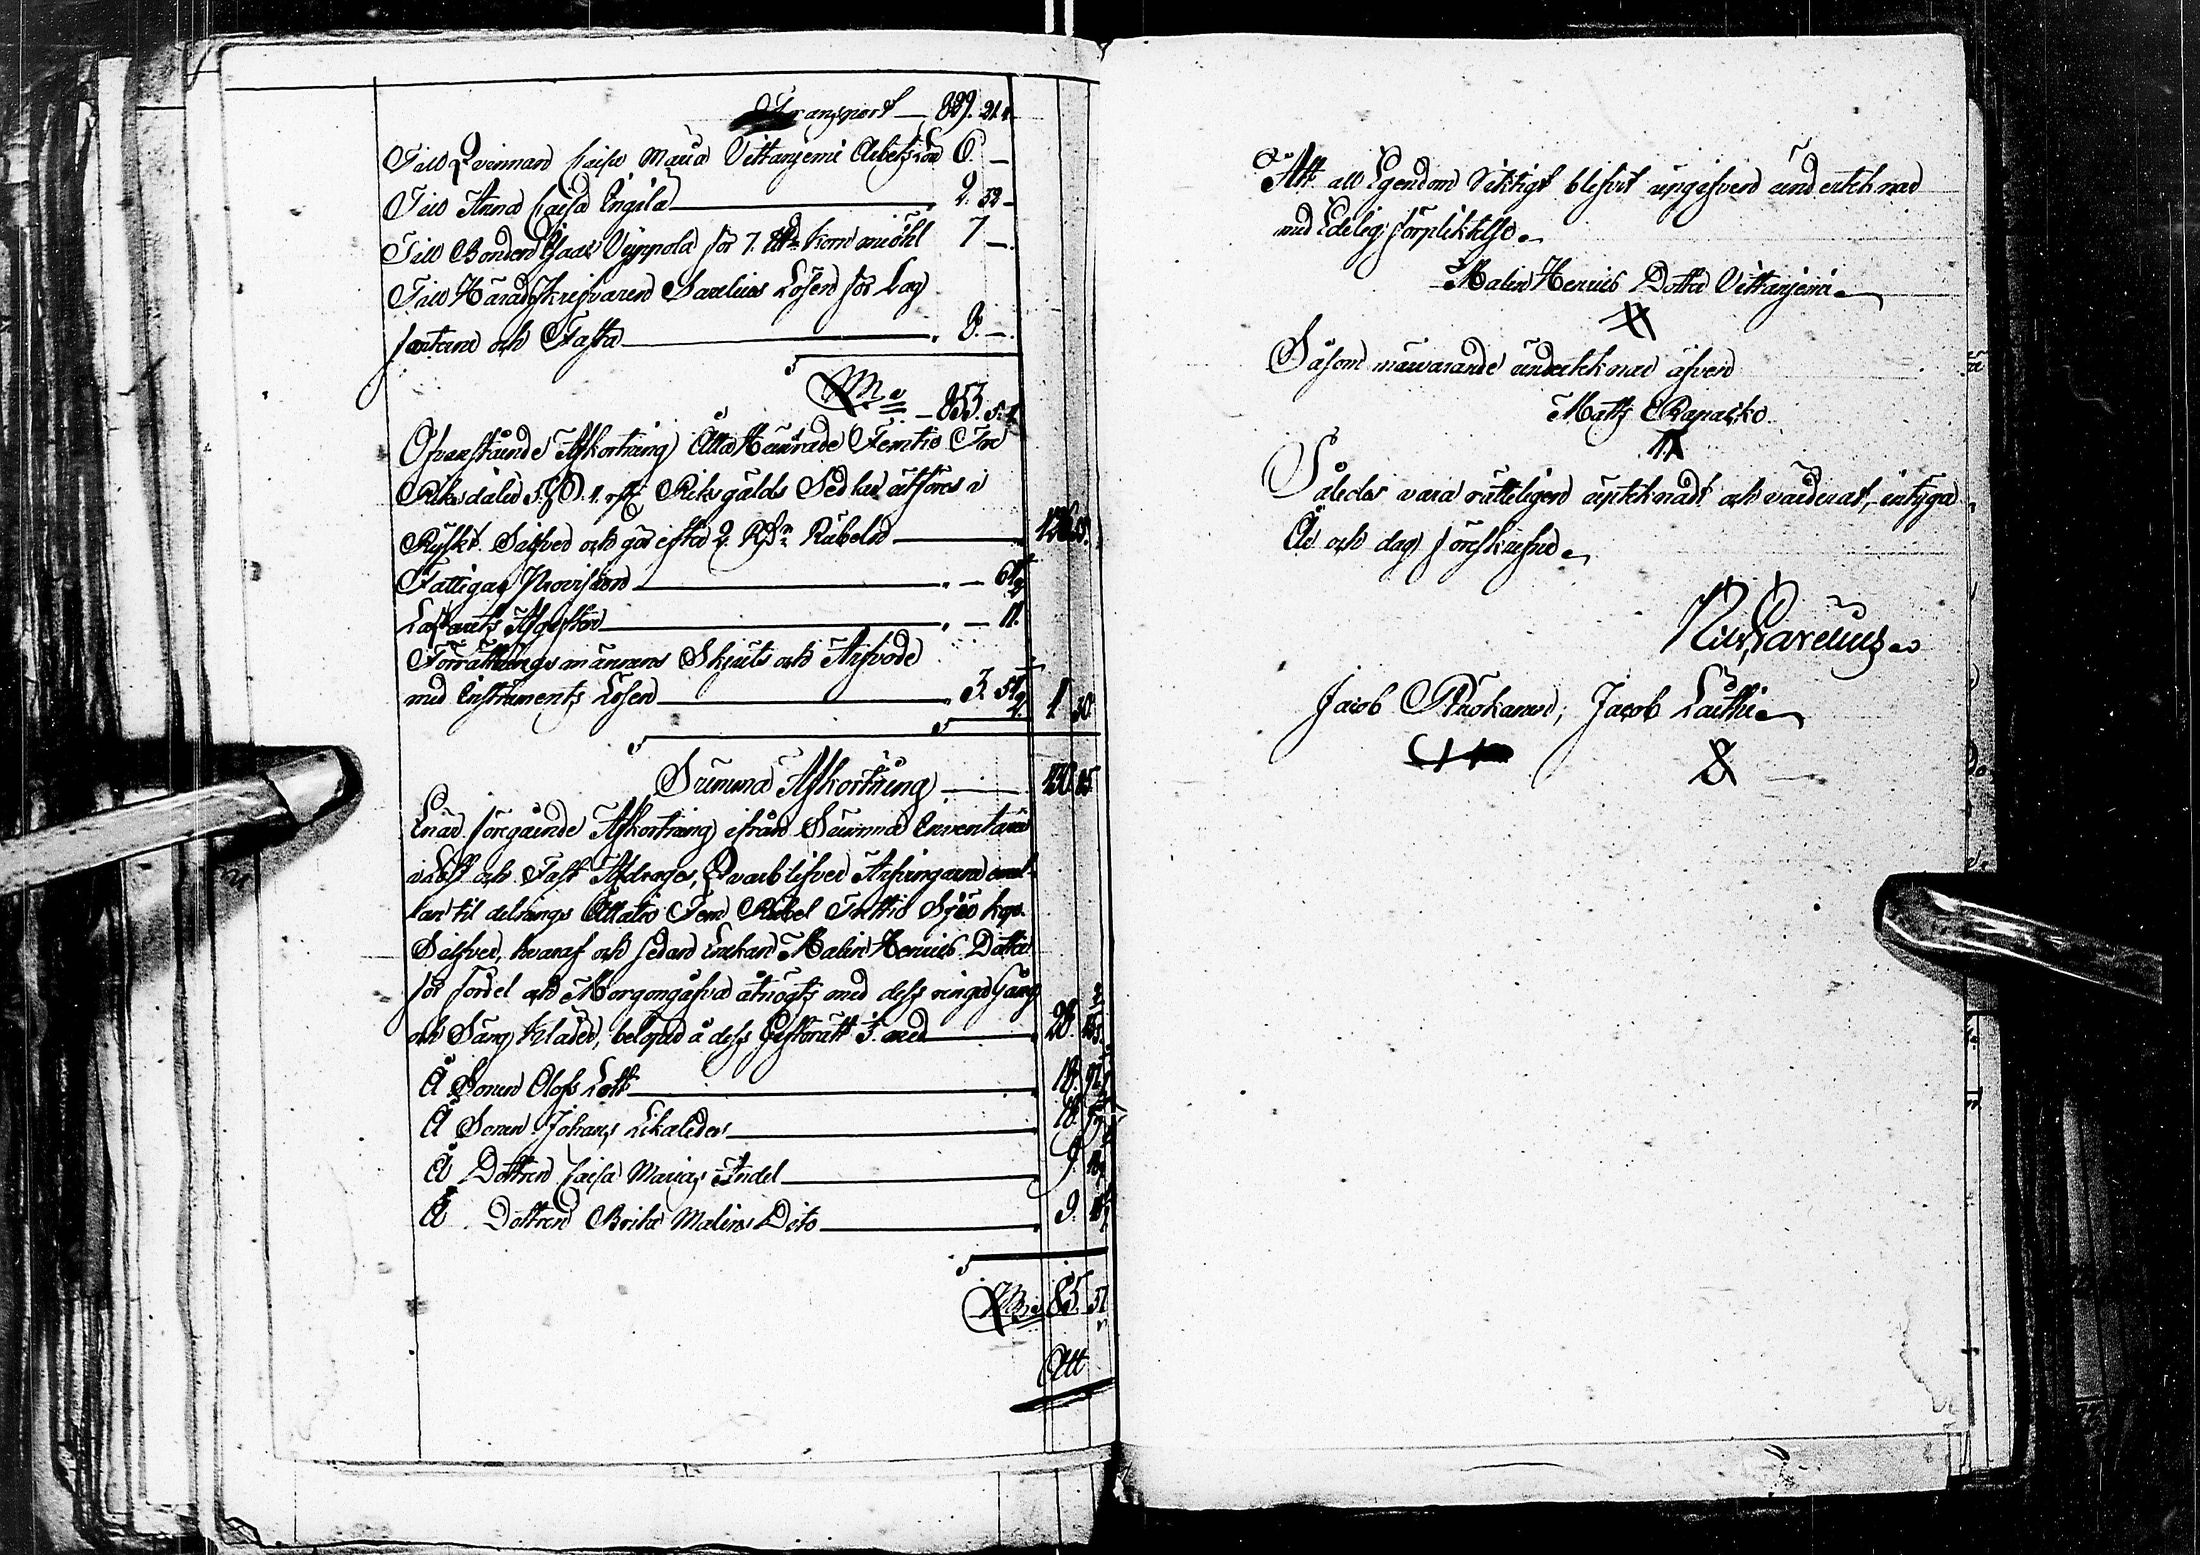 Transport — 829. 21.
Till Qvinnan Caisa Maria Vittaniemi Arbetslön 6. —
Till Anna Caisa Engila — 2. 32 —
Till Bonden Isaac Vyppola för 7. korn miöhl 7 —
Till Häradskrifvaren Sarelius Lösen för Lag
farterne och Fasta — 8. —
S:a — 853. 5. 1.
Ofvanstående Afkortning Åtta Hundrade Femtio Tre
Riksdaler 5. 1. Riksgälds Sedlar utföres i
Ryskt Silfver och gör efter 2. Rubeln —
Fattigas Provision — 64
Lazarets Afgiften — 11.
Förrättnings männens Skjuts och Arfvode
med Instruments Lösen — 3. 54 4 30
Summa Afkortning —
Enär föregående Afkortning ifrån Summa Inventarii
i Löst och Fast Afdrages, Qvarblifver Arfvingarne emel-
lan til delnings Åttatio Fem Rubel Trettio Sju kop.
Silfver, hvaraf och sedan Enkan Malin Henrics Dotter
för fördel och Morgongåfva åtnögts med dess ringa Säng
och Säng Kläder, belöper å dess Giftorätt ⅓ med — 28.
Å Sonen Olofs Lott — 18.
Å Sonen Johans Likaledes — 18.
Å Dottren Caisa Marias Andel — 9.
Å Dottren Brita Malins Dito — 9.
S:a 85. 37
Att
Att all Egendom Riktigt blifvit uppgifven undertecknad
med Edelig förpliktelse.
Malin Henrics Dotter Vittaniemi
Såsom närvarande undertecknar äfven
Matts Rapasko
Således vara rätteligen upteknadt och värderat, intyga
År och dag föreskrefne.
Nils Sarelius
Jacob Ruokanen, Jacob Lauthi